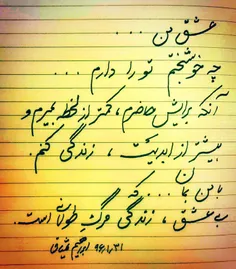 عشق من ...
چه خوشبختم تو را دارم ...
آنکه برایش حاضرم، کمتر از لحظه بمیرم و
بیشتر از ابدیت، زندگی کنم.
با من بمان ... که
بی عشق، زندگی مرگِ طولانی است.
۹۶/۱/۳۱